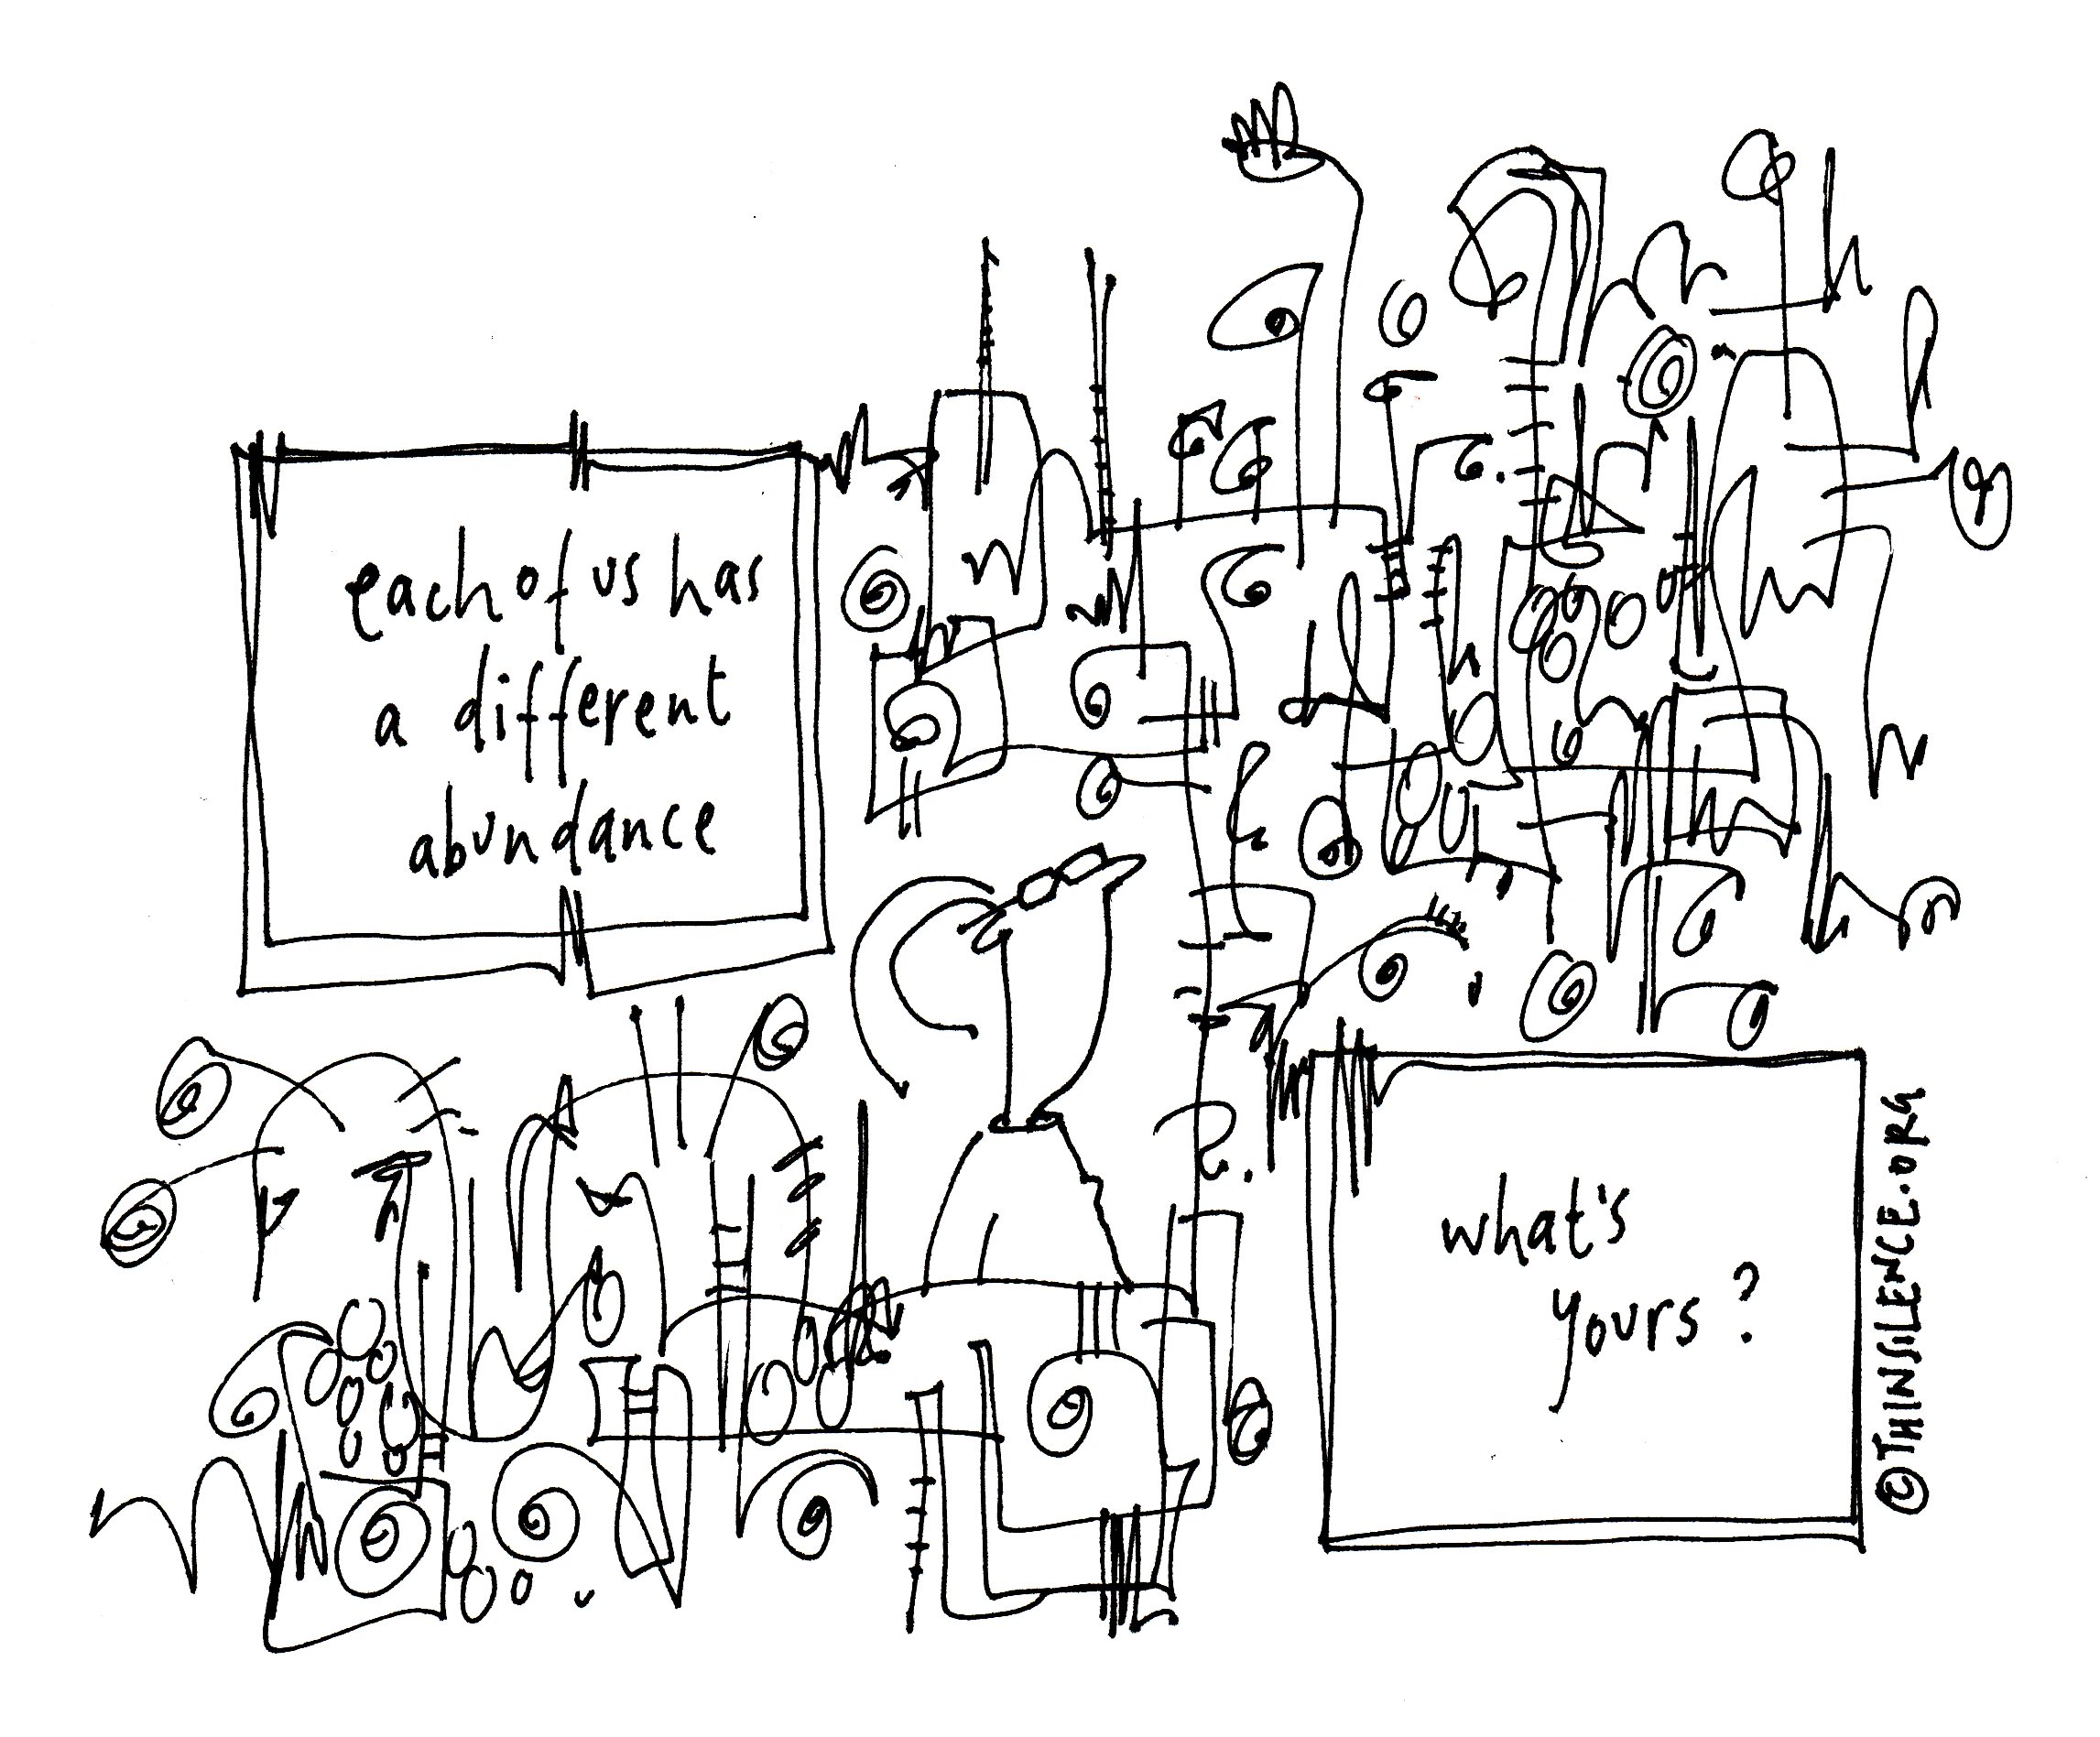 each of us has
a different
abundance
what's
yours?
©THINSILENCE.ORG